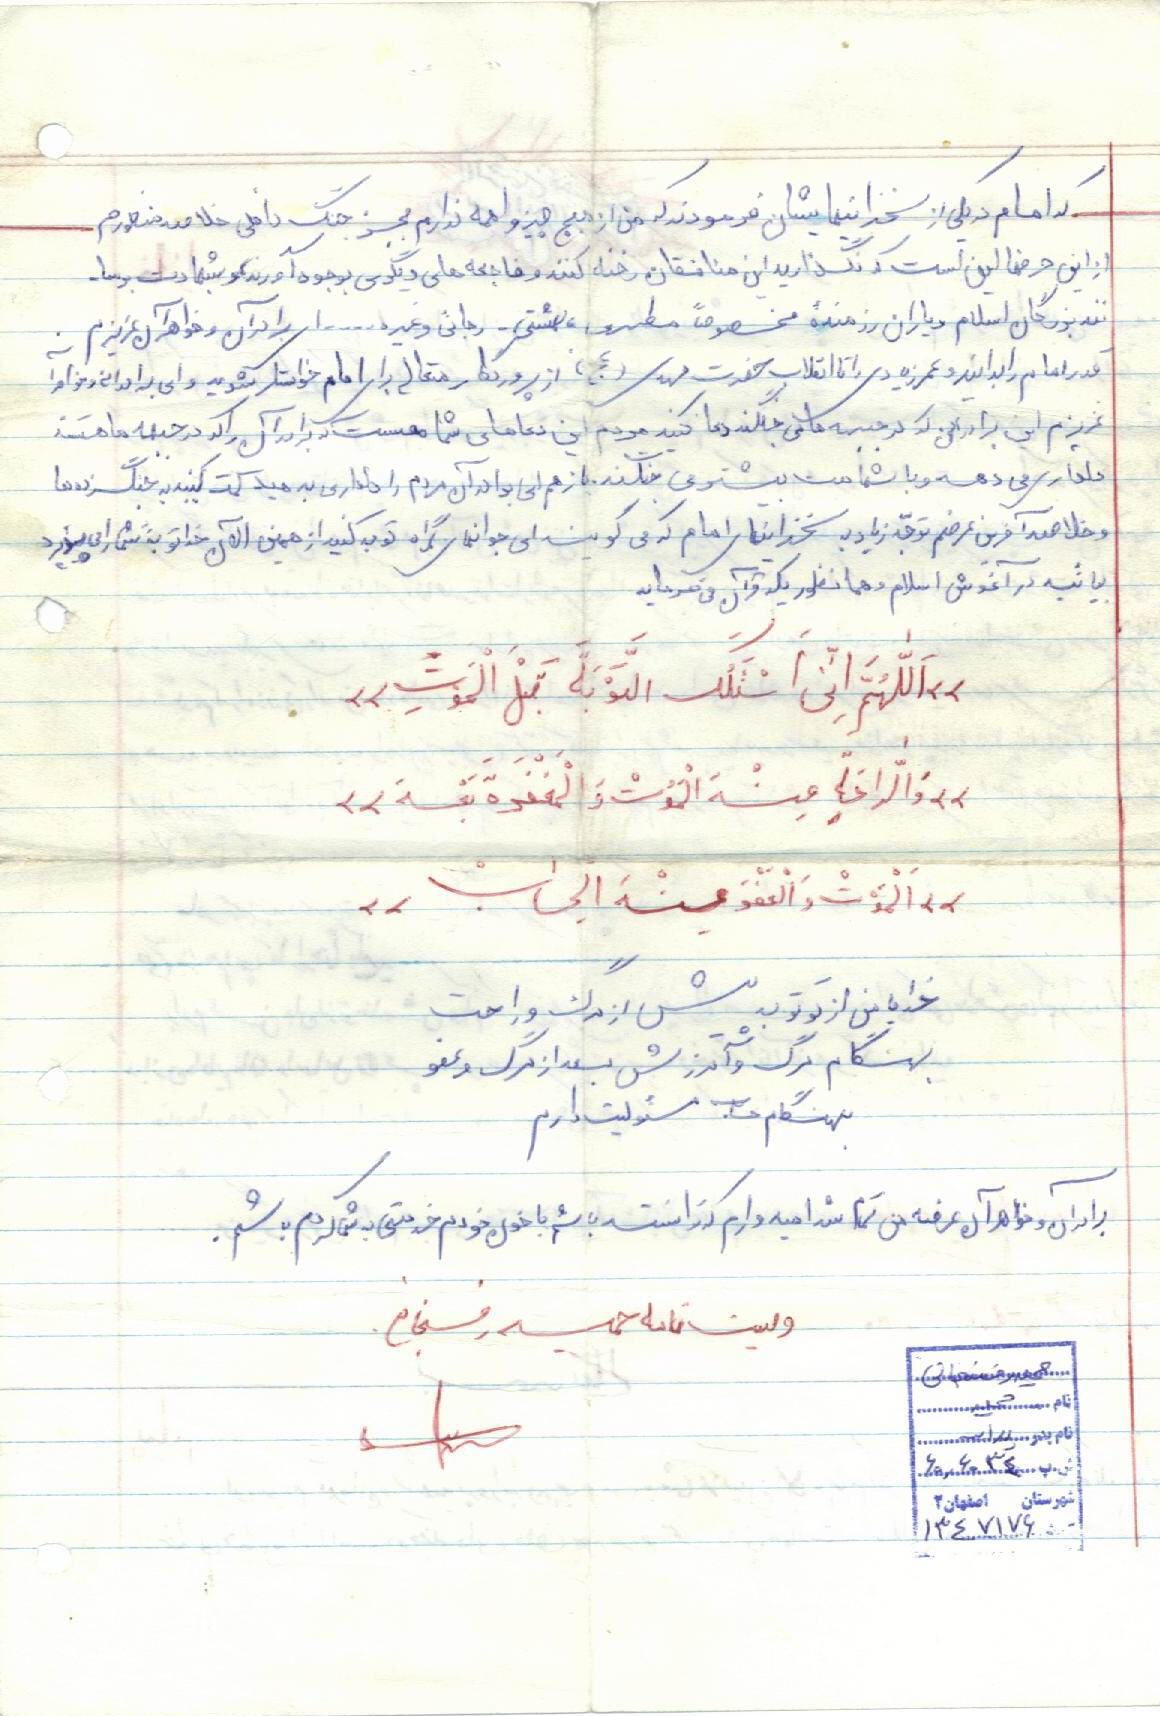 که امام در یکی از سخنرانیهایشان فرمودند که من از هیچ چیز واهمه ندارم بجز جنگ داخلی خلاصه منظورم
از این حرفها این است که نگذارید این منافقان رخنه کنند و فاجعه های دیگری بوجود آورند و بشهادت برسا-
نند بزرگان اسلام و یاران رزمندۀ مخصوصاً مطهری، بهشتی، رجائی و غیره ...... ای برادران و خواهران عزیزم
قدر امام را بدانید و عمر زیادی را تا انقلاب حضرت مهدی (عج) از پروردگار متعال برای امام خواستار شوید و ای برادران و خواهران
عزیزم این برادرانی که در جبهه ها می جنگند دعا کنید مردم این دعاهای شما هست که برادران را که در جبهه ها هستند
دلداری می دهد و با شهامت بیشتر می جنگند. باز هم ای برادران مردم را دلداری بدهید کمک کنید به جنگ زده ها
و خلاصه آخرین عرضم توجّه زیاد به سخنرانیهای امام که می گویند ای جوانهای گمراه توبه کنید از همین الآن خدا توبۀ شما را می پذیرد
بیائید در آغوش اسلام و همانطوریکه قرآن می فرماید
«اَللّهُمَّ اِنّی اَسْئَلُکَ التَّوْبَةَ قَبْلَ الْمَوْتِ»
«وَالرّاحَةِ عِنْدَ الْمَوْتْ وَ الْمَغْفِرَةَ بَعْدَ»
«اَلْمَوْتْ وَ الْعَفْوَ عِنْدَ الْحِسابْ»
خدایا من از تو توبه پیش از مرگ و راحت
بهنگام مرگ و آمرزش بعد از مرگ و عفو
بهنگام حساب مسئولیت دارم
برادران و خواهران عرضه من تمام شد امیدوارم که توانسته باشم با خون خودم خدمتی به شما کرده باشم.
وصیت نامه حمید رفسنجانی
حمید رفسنجانی
نام ... حمید
نام پدر ...
ش.پ ...
شهرستان اصفهان ۲
۱۳۴۷۱۷۶